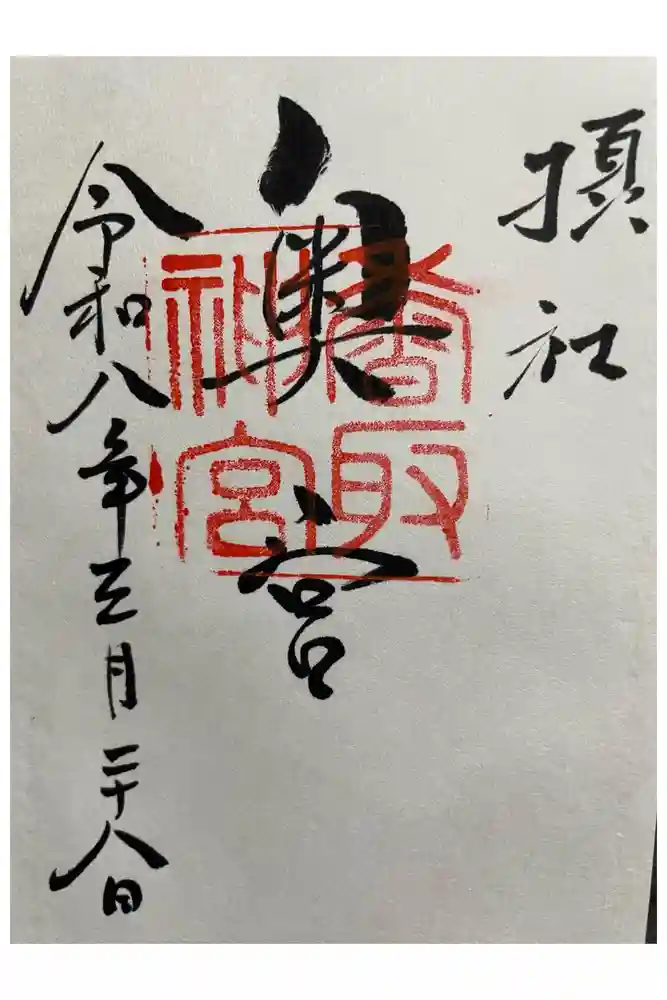 摂社
奥宮
香取
神宮
令和八年三月二十八日